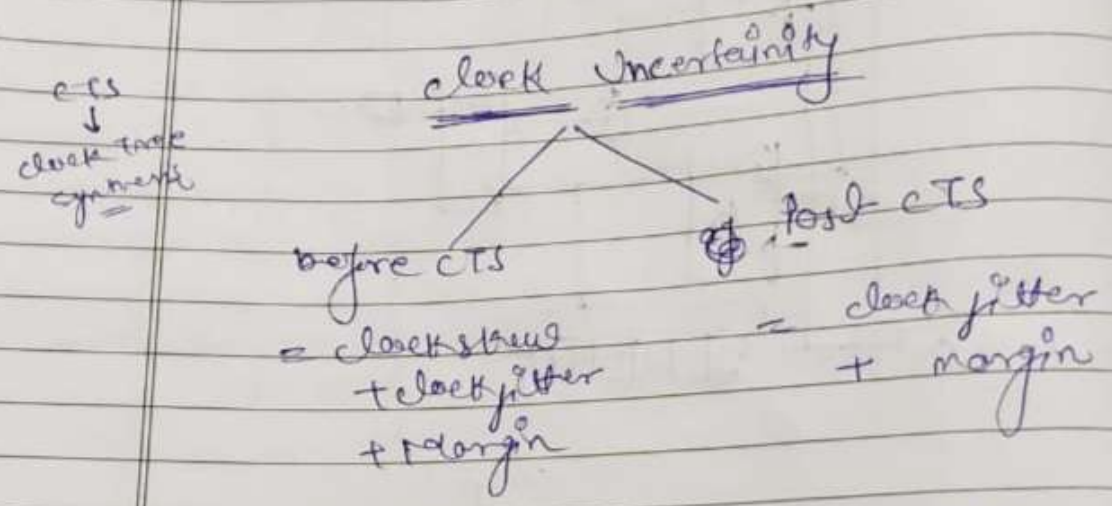 CTS
↓
clock tree
synthesis
clock Uncertainity
before CTS
= clock skew
+ clock jitter
+ Margin
Post CTS
= clock jitter
+ margin